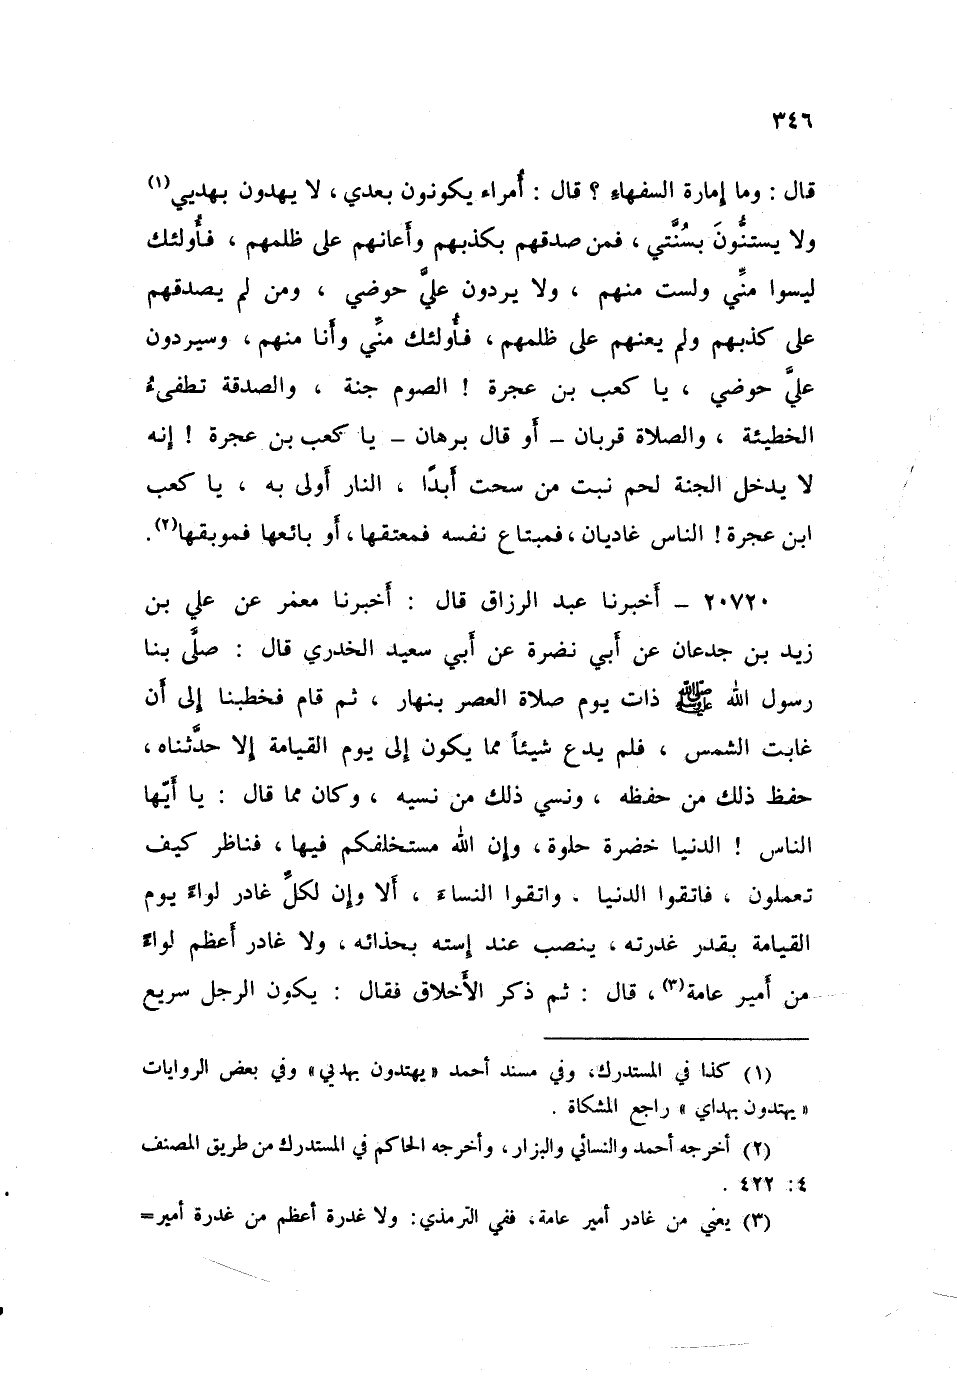 ٣٤٦
قال : وما إمارة السفهاءِ ؟ قال : أُمراء يكونون بعدي ، لا يهدون بهديي(١)
ولا يستنُّونَ بسُنَّتي ، فمن صدقهم بكذبهم وأَعانهم على ظلمهم ، فأُولئك
ليسوا منِّي ولست منهم ، ولا يردون عليَّ حوضي ، ومن لم يصدقهم
على كذبهم ولم يعنهم على ظلمهم ، فأُولئك منِّي وأَنا منهم ، وسيردون
عليَّ حوضي ، يا كعب بن عجرة ! الصوم جنة ، والصدقة تطفىءُ
الخطيئة ، والصلاة قربان – أَو قال برهان – يا كعب بن عجرة ! إنه
لا يدخل الجنة لحم نبت من سحت أَبدًا ، النار أَولى به ، يا كعب
ابن عجرة ! الناس غاديان ، فمبتاع نفسه فمعتقها ، أَو بائعها فموبقها(٢) .
٢٠٧٢٠ – أَخبرنا عبد الرزاق قال : أَخبرنا معمر عن علي بن
زيد بن جدعان عن أَبي نضرة عن أَبي سعيد الخدري قال : صلَّى بنا
رسول الله ﷺ ذات يوم صلاة العصر بنهار ، ثم قام فخطبنا إلى أَن
غابت الشمس ، فلم يدع شيئاً مما يكون إلى يوم القيامة إلا حدَّثناه ،
حفظ ذلك من حفظه ، ونسي ذلك من نسيه ، وكان مما قال : يا أَيّها
الناس ! الدنيا خضرة حلوة ، وإن الله مستخلفكم فيها ، فناظر كيف
تعملون ، فاتقوا الدنيا . واتقوا النساءَ ، أَلا وإن لكلِّ غادر لواءً يوم
القيامة بقدر غدرته ، ينصب عند إسته بحذائه ، ولا غادر أَعظم لواءً
من أَمير عامة(٣) ، قال : ثم ذكر الأَخلاق فقال : يكون الرجل سريع
(١) كذا في المستدرك، وفي مسند أحمد «يهتدون بهديي» وفي بعض الروايات
«يهتدون بهداي» راجع المشكاة .
(٢) أخرجه أحمد والنسائي والبزار ، وأخرجه الحاكم في المستدرك من طريق المصنف
٤: ٤٢٢ .
(٣) يعني من غادر أمير عامة، ففي الترمذي: ولا غدرة أعظم من غدرة أمير=